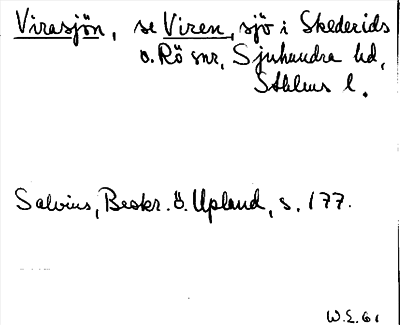 Virasjön, se Viren, sjö i Skederids
o. Rö snr, Sjuhundra hd,
Sthlms l.
Salvius, Beskr. ö. Upland, s. 177.
W.E. 61